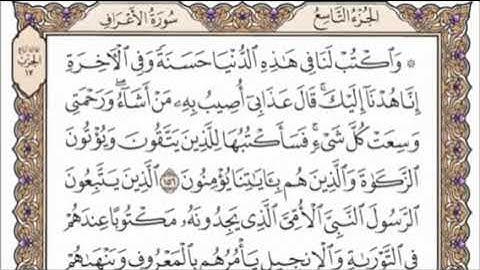 الجزء التاسع
سورة الأعراف
۞ وَاكْتُبْ لَنَا فِي هَٰذِهِ الدُّنْيَا حَسَنَةً وَفِي الْآخِرَةِ
إِنَّا هُدْنَا إِلَيْكَ ۚ قَالَ عَذَابِي أُصِيبُ بِهِ مَنْ أَشَاءُ ۖ وَرَحْمَتِي
وَسِعَتْ كُلَّ شَيْءٍ ۚ فَسَأَكْتُبُهَا لِلَّذِينَ يَتَّقُونَ وَيُؤْتُونَ
الزَّكَوٰةَ وَالَّذِينَ هُم بِـَٔايَاتِنَا يُؤْمِنُونَ ١٥٦ الَّذِينَ يَتَّبِعُونَ
الرَّسُولَ النَّبِيَّ الْأُمِّيَّ الَّذِي يَجِدُونَهُ مَكْتُوبًا عِندَهُمْ
فِي التَّوْرَىٰةِ وَالْإِنجِيلِ يَأْمُرُهُم بِالْمَعْرُوفِ وَيَنْهَاهُمْ